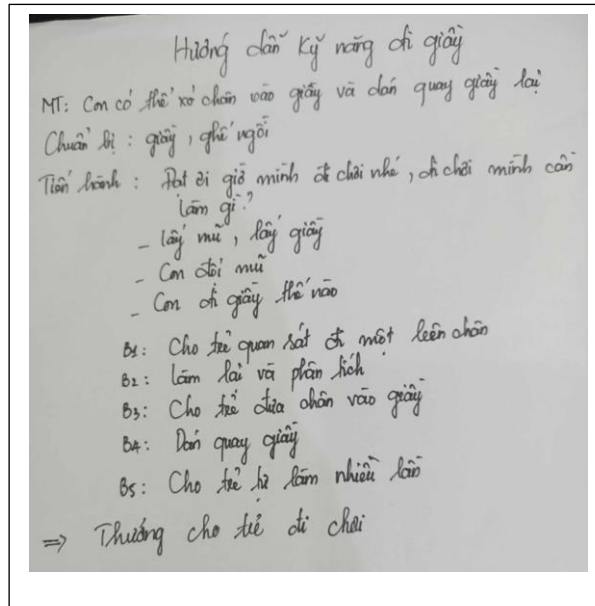 Hướng dẫn kỹ năng đi giầy
MT: Con có thể xỏ chân vào giầy và dán quay giầy lại
Chuẩn bị : giầy, ghế ngồi
Tiến hành : Đạt ơi giờ mình đi chơi nhé, đi chơi mình cần
làm gì?
- lấy mũ, lấy giầy
- Con đội mũ
- Con đi giầy thế nào
B1: Cho trẻ quan sát đi một bên chân
B2: Làm lại và phân tích
B3: Cho trẻ đưa chân vào giầy
B4: Dán quay giầy
B5: Cho trẻ tự làm nhiều lần
=> Thưởng cho trẻ đi chơi